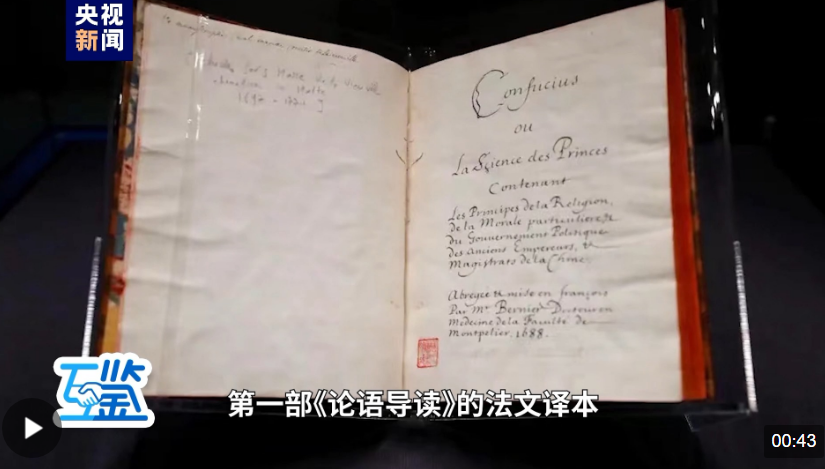 央视
新闻
Confucius
ou
La Science des Princes
Contenant
Les Principes de la Religion,
de la Morale particuliere, &
du Gouvernement Politique
des Anciens Empereurs, &
Magistrats de la Chine.
Abregée & mise en françois
Par Mr. Bernier Docteur en
Medecine de la Faculté de
Montpelier. 1688.
互鉴
第一部《论语导读》的法文译本
00:43